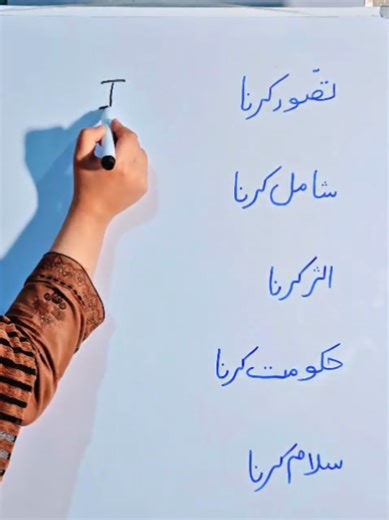 I
تصّور کرنا
شامل کرنا
اثر کرنا
حکومت کرنا
سلام کرنا